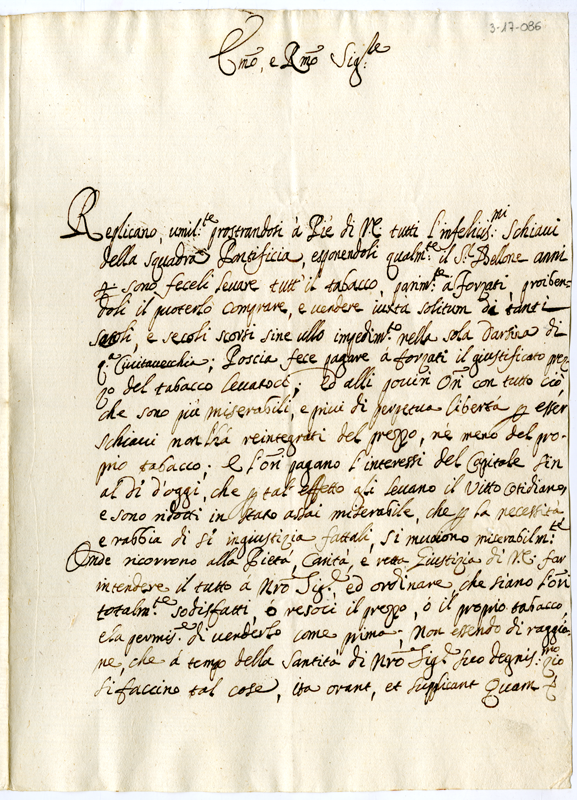 3-17-086
Em̃o, e Rm̃o Sig:re
Replicano, umil:te prostrandosi à Piè di VE tutti l'infelius:mi Schiavi
della Squadra Pontificia, esponendoli qualm:te il S:r Bellone anni
sono feceli levare tutt'il tabacco, parim:te à forzati, proiben-
doli il poterlo comprare, e vendere iuxta solitum di tanti
secoli, e secoli scorsi sine ullo impedim:to nella sola Darsina di
q:a Civitavecchia; Poscia fece pagare à forzati il giustificato prez-
zo del tabacco levatoli; ed alli poveri On̄ con tutto ciò
che sono più miserabili, e privi di perpetua libertà p esser
schiavi non l'hà reintegrati del prezzo, nè meno del pro-
prio tabacco; e l'On̄ pagano l'interessi del Capitale sin
al dì d'oggi, che p tal effetto gli levano il Vitto Cotidiano,
e sono ridotti in stato assai miserabile, che p la necessità
e rabbia di sì ingiustizia fattali, si muoiono miserabilm:te
Onde ricorrono alla Pietà, Carità, e retta Giustizia di VE: far
intendere il tutto à Nrō Sig:re ed ordinare che siano l'On̄
totalm:te sodisfatti, ò resoci il prezzo, ò il proprio tabacco,
e la permis:e di venderlo come prima. Non essendo di raggio-
ne, che à tempo della Santità di Nrō Sig:re degnis:mo
si faccino tal cose, ita orant, et supplicant Quam